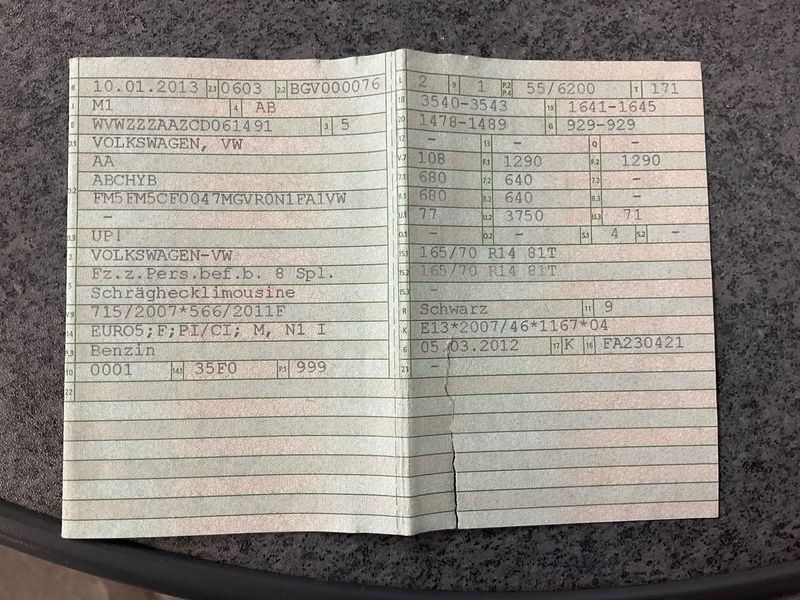 B 10.01.2013 2.1 0603 2.2 BGV000076
J M1 4 AB
E WVWZZZAAZCD061491 3 5
D.1 VOLKSWAGEN, VW
AA
D.2 ABCHYB
FM5FM5CF0047MGVR0N1FA1VW
-
D.3 UP!
2 VOLKSWAGEN-VW
5 Fz.z.Pers.bef.b. 8 Spl.
Schräghecklimousine
V.9 715/2007*566/2011F
14 EURO5;F;PI/CI; M, N1 I
P.3 Benzin
10 0001 14.1 35F0 P.1 999
22
L 2 9 1 P.2 P.4 55/6200 T 171
18 3540-3543 19 1641-1645
20 1478-1489 G 929-929
12 - 13 - Q -
V.7 108 F.1 1290 F.2 1290
7.1 680 7.2 640 7.3 -
8.1 680 8.2 640 8.3 -
U.1 77 U.2 3750 U.3 71
O.1 - O.2 - S.1 4 S.2 -
15.1 165/70 R14 81T
15.2 165/70 R14 81T
15.3 -
R Schwarz 11 9
K E13*2007/46*1167*04
6 05.03.2012 17 K 16 FA230421
21 -